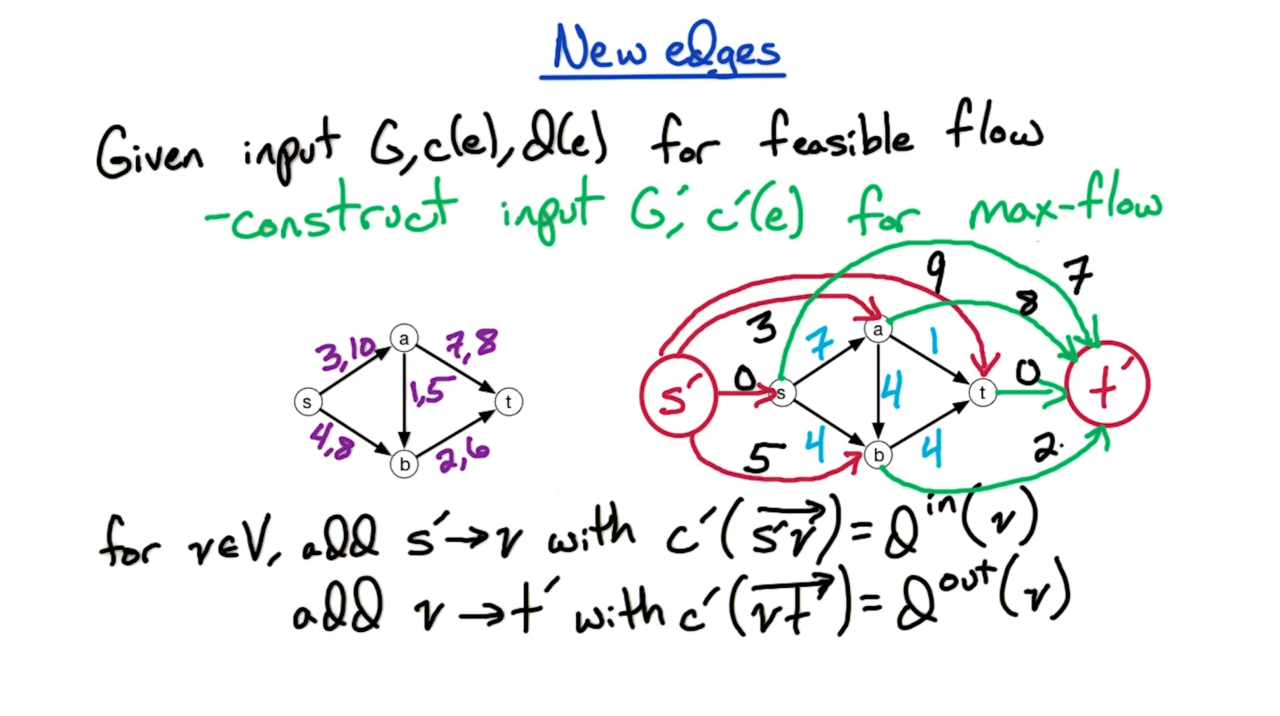 New edges
Given input G, c(e), d(e) for feasible flow
-construct input G′, c′(e) for max-flow
9 7
3 8
3,10 a 7,8
7 a 1
s 1,5 t
s′ 0 s 4 t 0 t′
4,8 b 2,6
5 4 b 4 2
for v∈V, add s′→v with c′(s′v) = d^in(v)
add v→t′ with c′(vt′) = d^out(v)